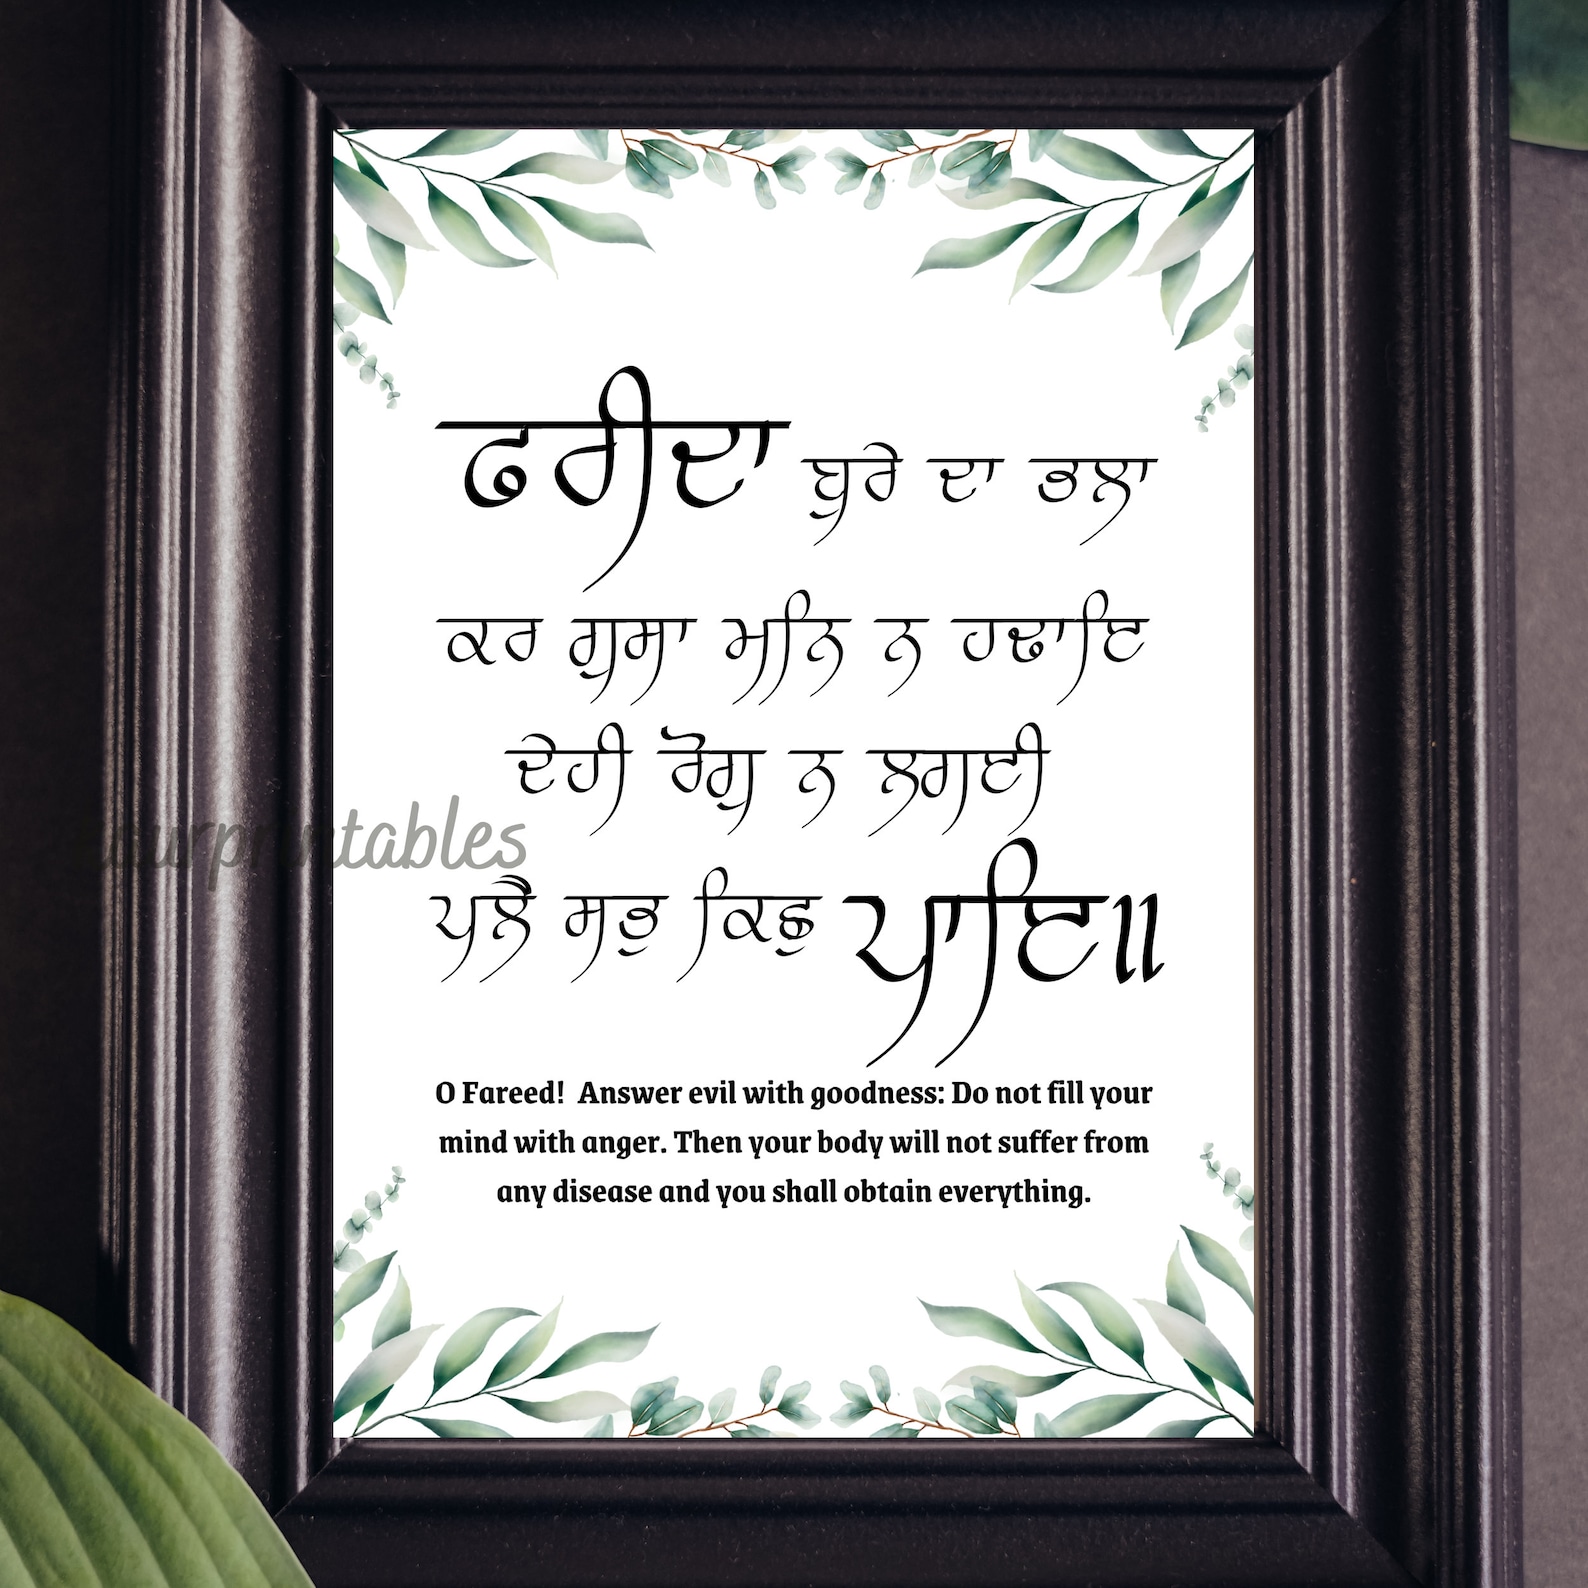 ਫਰੀਦਾ ਬੁਰੇ ਦਾ ਭਲਾ
ਕਰ ਗੁਸਾ ਮਨਿ ਨ ਹਢਾਇ
ਦੇਹੀ ਰੋਗੁ ਨ ਲਗਈ
ਪਲੈ ਸਭੁ ਕਿਛੁ ਪਾਇ॥
O Fareed! Answer evil with goodness: Do not fill your
mind with anger. Then your body will not suffer from
any disease and you shall obtain everything.